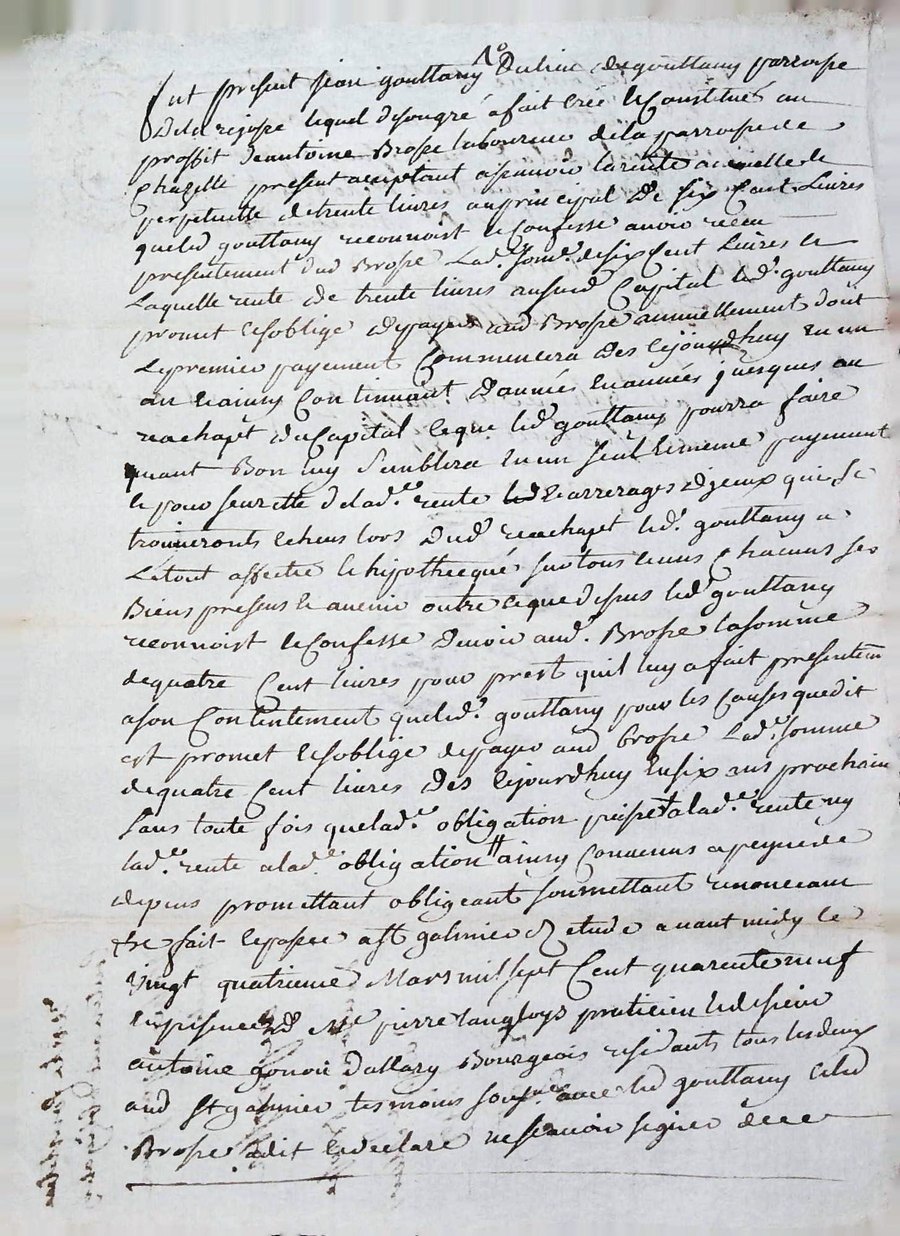 1º
Fut present jean gouttany du lieu de gouttany parroisse
lequel de son gré a fait créé et Constitué au
proffit de antoine Brosse laboureur de la parroisse de
Chazelle present acceptant asscavoir la rente annuelle et
perpetuelle de trente livres au principal de six Cent Livres
queled gouttany reconnoist et Confesse avoir receu
presentement dud Brosse Lad.e som.e de six Cent Livres et
Laquelle rente de trente livres ausud Capital led.t gouttany
promet et soblige de payer aud Brosse annuellement dont
Le premier payement Commencera des ce jourdhuy en un
an et ainsy Continuant d'années en années jusques au
rachapt du Capital ce que led gouttany pourra faire
quant Bon luy semblera en un seul et meme payement
et pour seurette de lad.e rente et arrerages d'jceux qui se
trouveronts echeus lors dud reachapt led.t gouttany a
Le tout affecté et hipothecqué sur tous et uns Chacuns ses
Biens presens et avenir outre ce que dessus led.t gouttany
reconnoist et Confesse devoir aud.t Brosse la somme
de quatre Cent livres pour prest quil luy a fait presentem
a son Contentement queled.t gouttany pour les Causes que dit
est promet et soblige de payer aud brosse Lad.e somme
de quatre Cent livres des ce jourdhuy en six ans prochain
sans toute fois que lad.e obligation a lad.e rente ny
lad.e rente a lad.e obligation ainsy Convenus a peyne de
depens promettant obligeant soumettant renonceant
fait et passé a St galmier etude avant midy le
vingt quatrieme Mars mil sept Cent quarente neuf
en presence de Me pierre langloys praticien et de sieur
antoine Bourgeois residants tous les deux
aud St galmier tesmoins avec led gouttany et led
Brosse a dit et declaré ne scavoir signer de ce